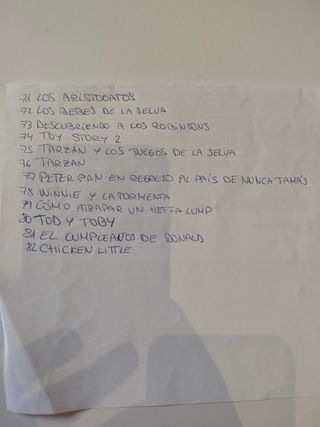 71 LOS ARISTOGATOS
72 LOS BEBES DE LA SELVA
73 DESCUBRIENDO A LOS ROBINSONS
74 TOY STORY 2
75 TARZAN Y LOS JUEGOS DE LA SELVA
76 TARZAN
77 PETER PAN EN REGRESO AL PAÍS DE NUNCA JAMÁS
78 WINNIE Y LA TORMENTA
79 CÓMO ATRAPAR UN HEFFA LUMP
80 TOD Y TOBY
81 EL CUMPLEAÑOS DE DONALD
82 CHICKEN LITTLE